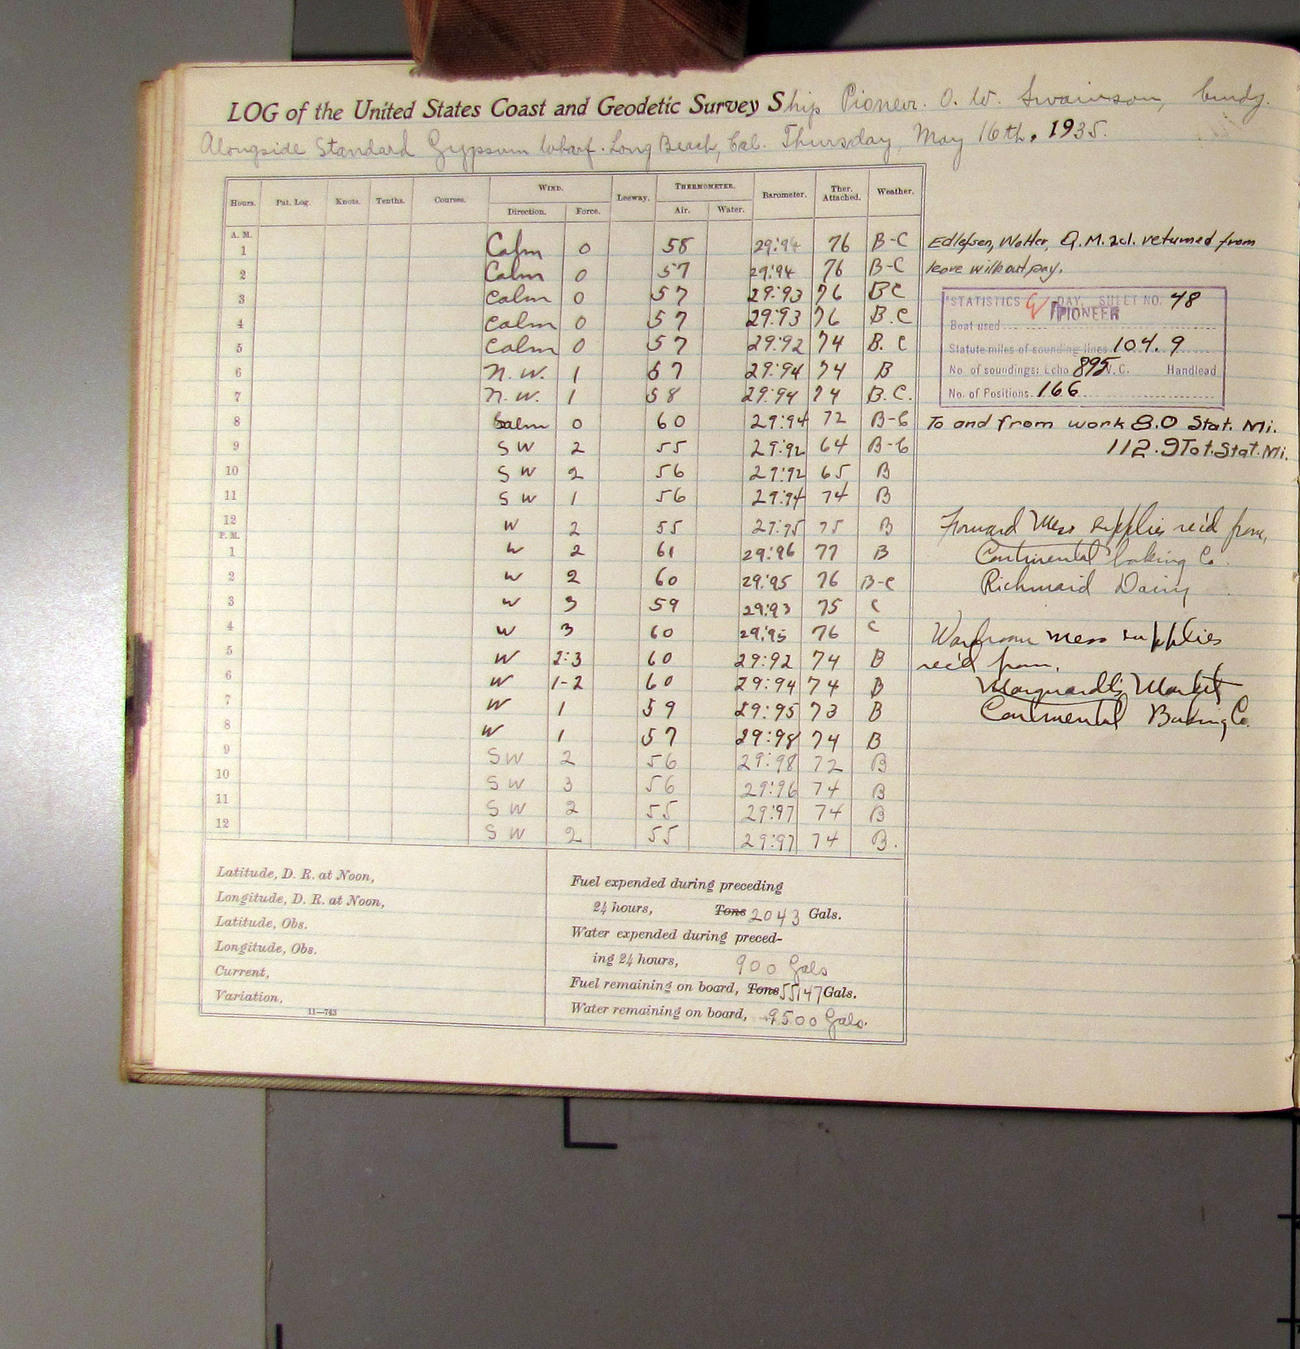 LOG of the United States Coast and Geodetic Survey Ship Pioneer. O. W. Swainson, Comdg.
Alongside Standard Gypsum Wharf. Long Beach, Cal. Thursday, May 16th, 1935.
Hours. Pat. Log. Knots. Tenths. Courses. WIND. Leeway. THERMOMETER. Barometer. Ther. Attached. Weather.
Direction. Force. Air. Water.
A. M.
1 Calm 0 58 29:94 76 B-C
2 Calm 0 57 29:94 76 B-C
3 Calm 0 57 29:93 76 BC
4 Calm 0 57 29:93 76 B.C
5 Calm 0 57 29:92 74 B.C
6 N.W. 1 57 29:94 74 B
7 N.W. 1 58 29:94 74 B.C.
8 Calm 0 60 29:94 72 B-C
9 SW 2 55 29:92 64 B-C
10 SW 2 56 29:92 65 B
11 SW 1 56 29:94 74 B
12 W 2 55 29:95 75 B
P. M.
1 W 2 61 29:96 77 B
2 W 2 60 29:95 76 B-C
3 W 3 59 29:93 75 C
4 W 3 60 29:95 76 C
5 W 2:3 60 29:92 74 B
6 W 1-2 60 29:94 74 B
7 W 1 59 29:95 73 B
8 W 1 57 29:98 74 B
9 SW 2 56 29:98 72 B
10 SW 3 56 29:96 74 B
11 SW 2 55 29:97 74 B
12 SW 2 55 29:97 74 B.
Edlefsen, Walter, Q.M. 2cl. returned from
leave without pay.
STATISTICS DAY, SHEET NO. 48
PIONEER
Boat used
Statute miles of sounding lines 104.9
No. of soundings: Echo 895 V.C. Handlead
No. of Positions. 166
To and from work 8.0 Stat. Mi.
112.9 Tot. Stat. Mi.
Forward Mess supplies rec'd from,
Continental Baking Co.
Richmaid Dairy
Wardroom mess supplies
rec'd from,
Marquardt's Market
Continental Baking Co.
Latitude, D. R. at Noon,
Longitude, D. R. at Noon,
Latitude, Obs.
Longitude, Obs.
Current,
Variation,
11—743
Fuel expended during preceding
24 hours, Tons 2043 Gals.
Water expended during preced-
ing 24 hours, 900 Gals
Fuel remaining on board, Tons 55147 Gals.
Water remaining on board, 9500 Gals.